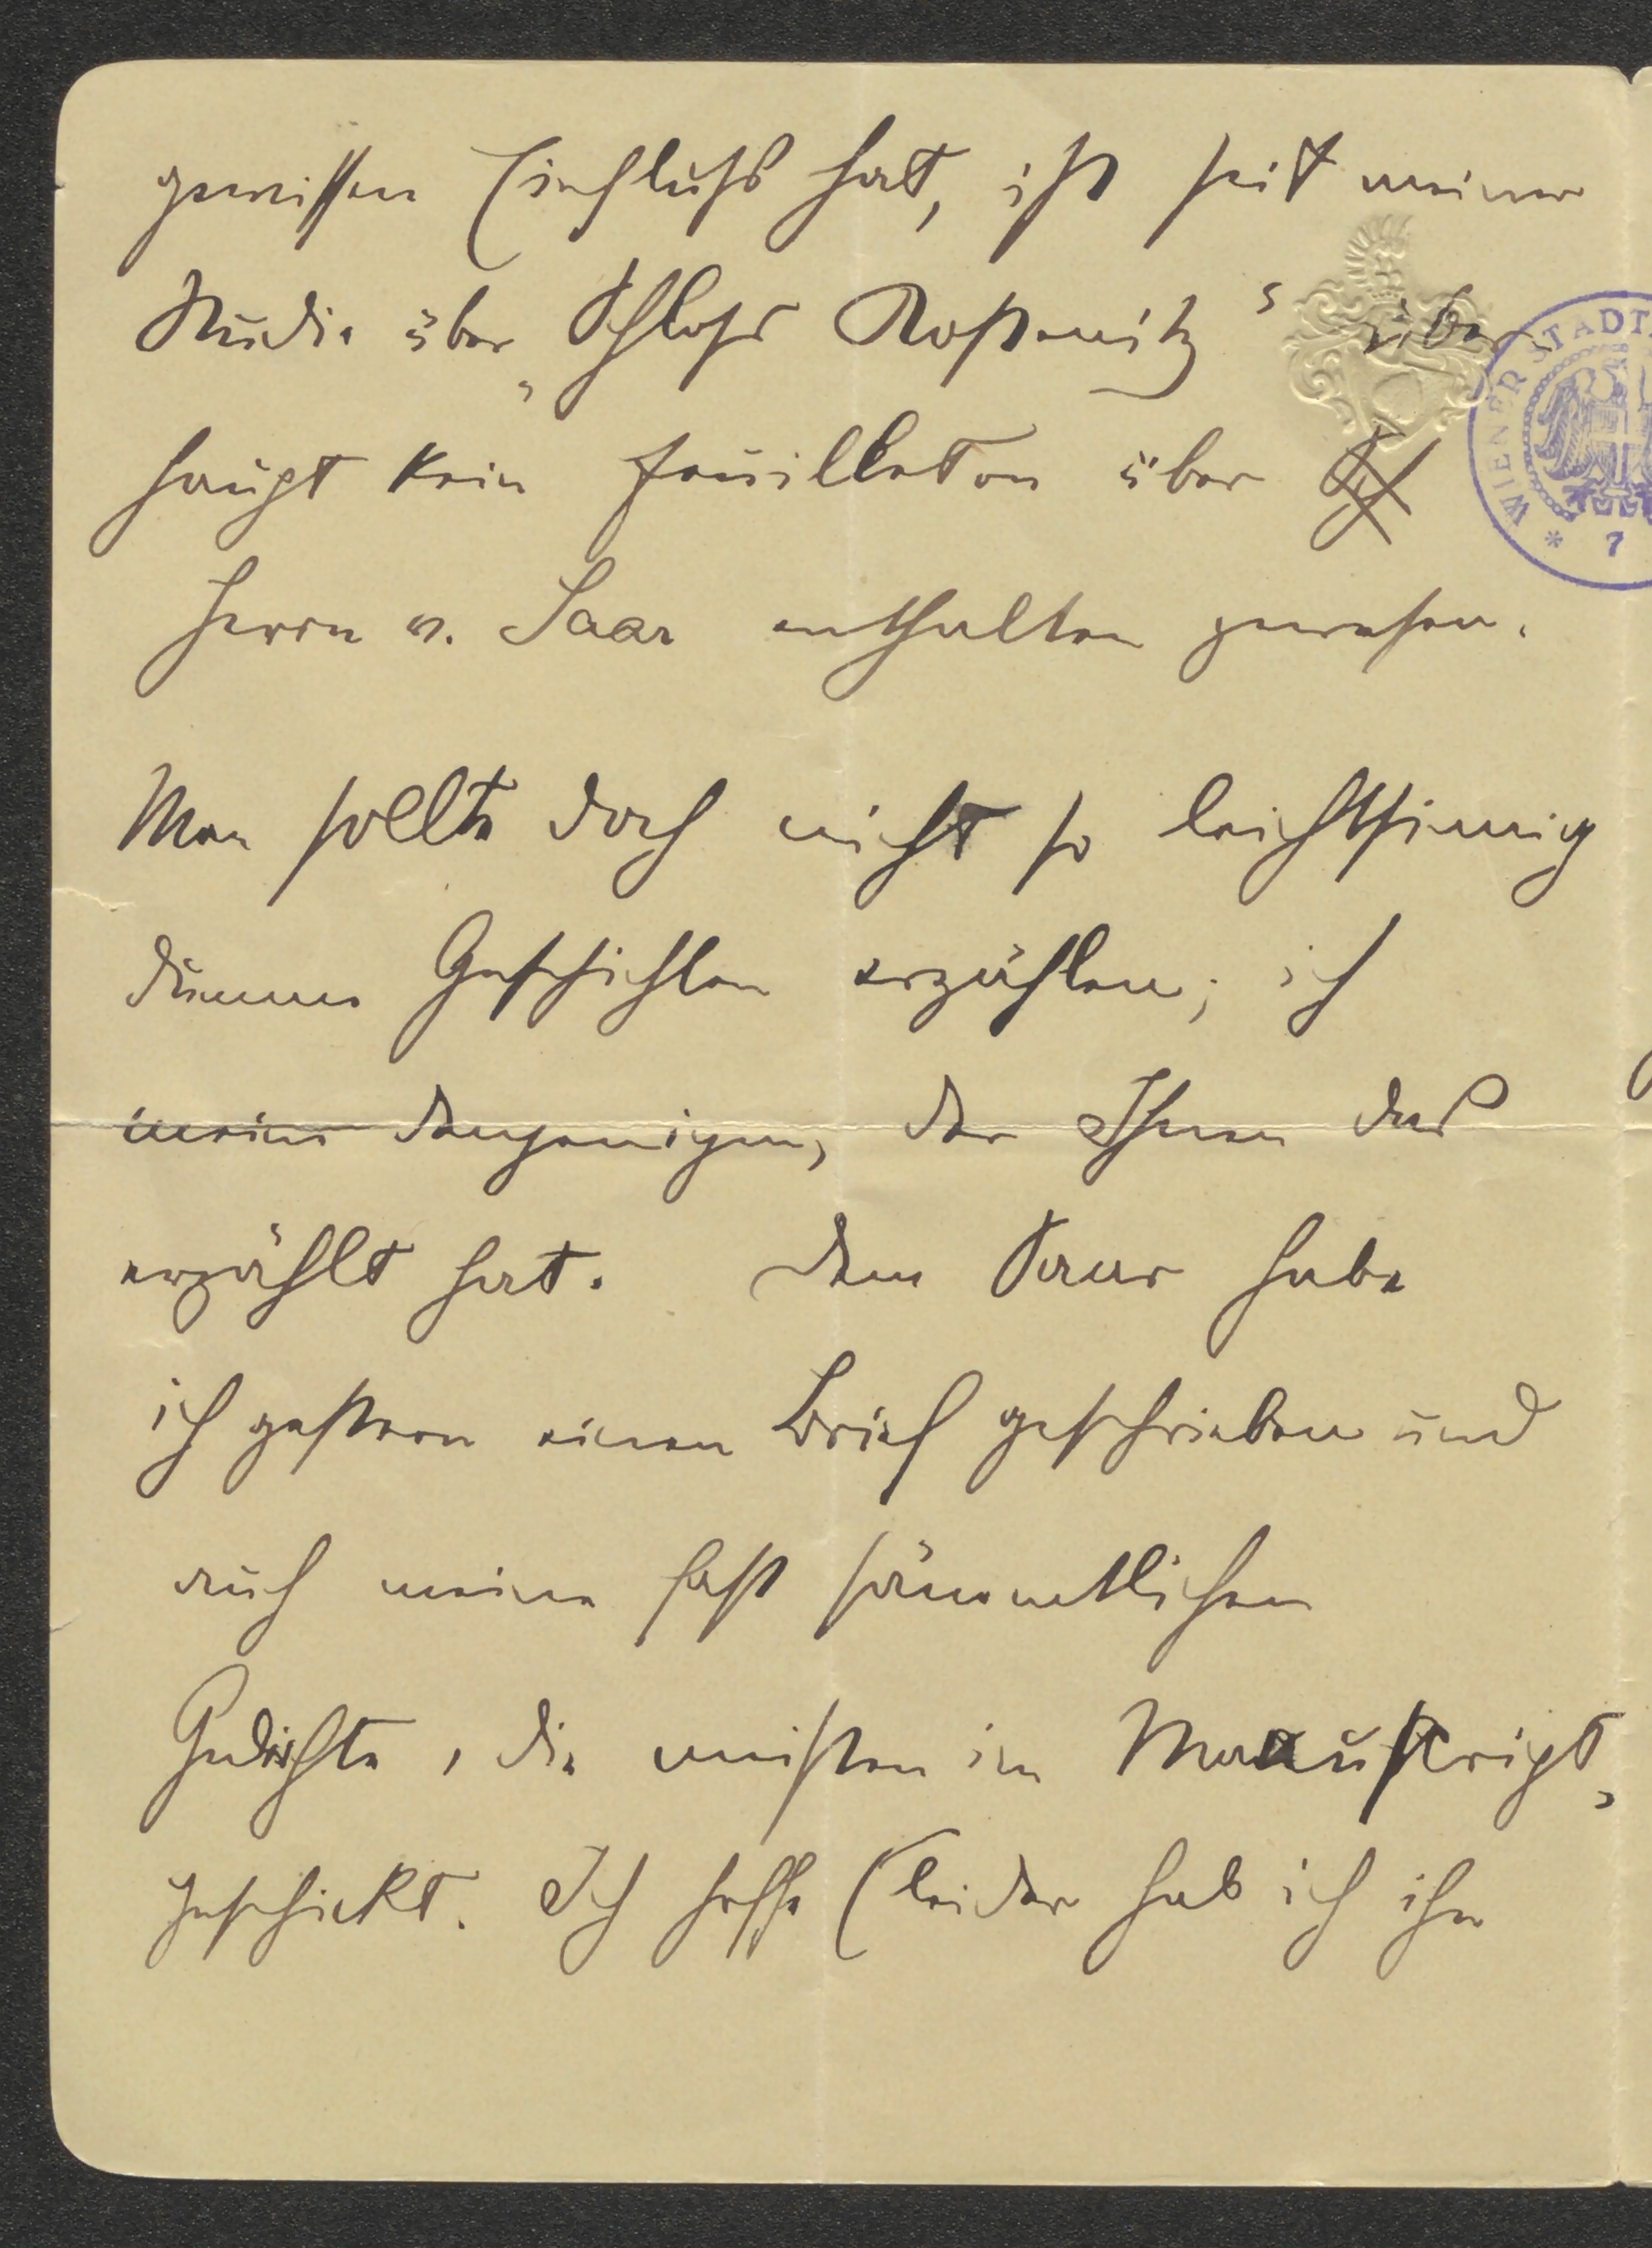 gewissen Einfluss hat, ist seit meiner
Studie über „Schloss Kostenitz“ über
haupt kein Feuilleton über
Herrn v. Saar enthalten gewesen.
Man sollte doch nicht so leichtsinnig
dumme Geschichten erzählen; ich
meine denjenigen, der Ihnen das
erzählt hat. Dem Saar habe
ich gestern einen Brief geschrieben und
auch meine fast sämmtlichen
Gedichte, die meisten im Manuskript,
geschickt. Ich hoffe (leider hab ich ihn
WIENER STADT
* 7